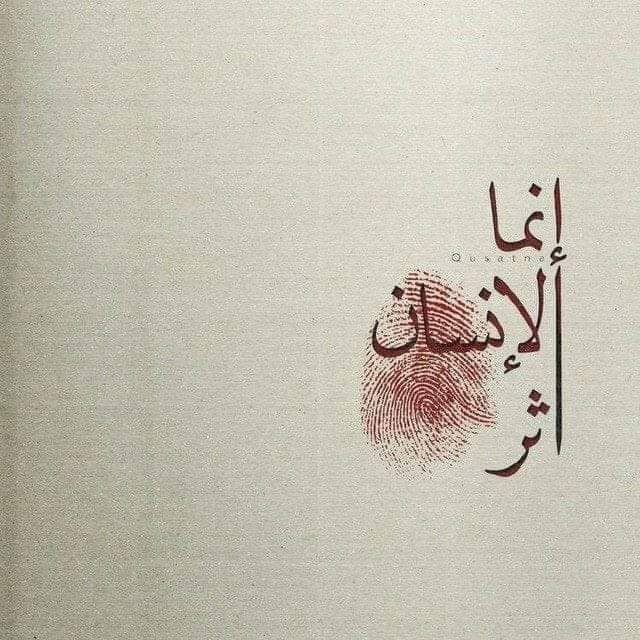 إنما
Qusatne
الإنسان
أثر